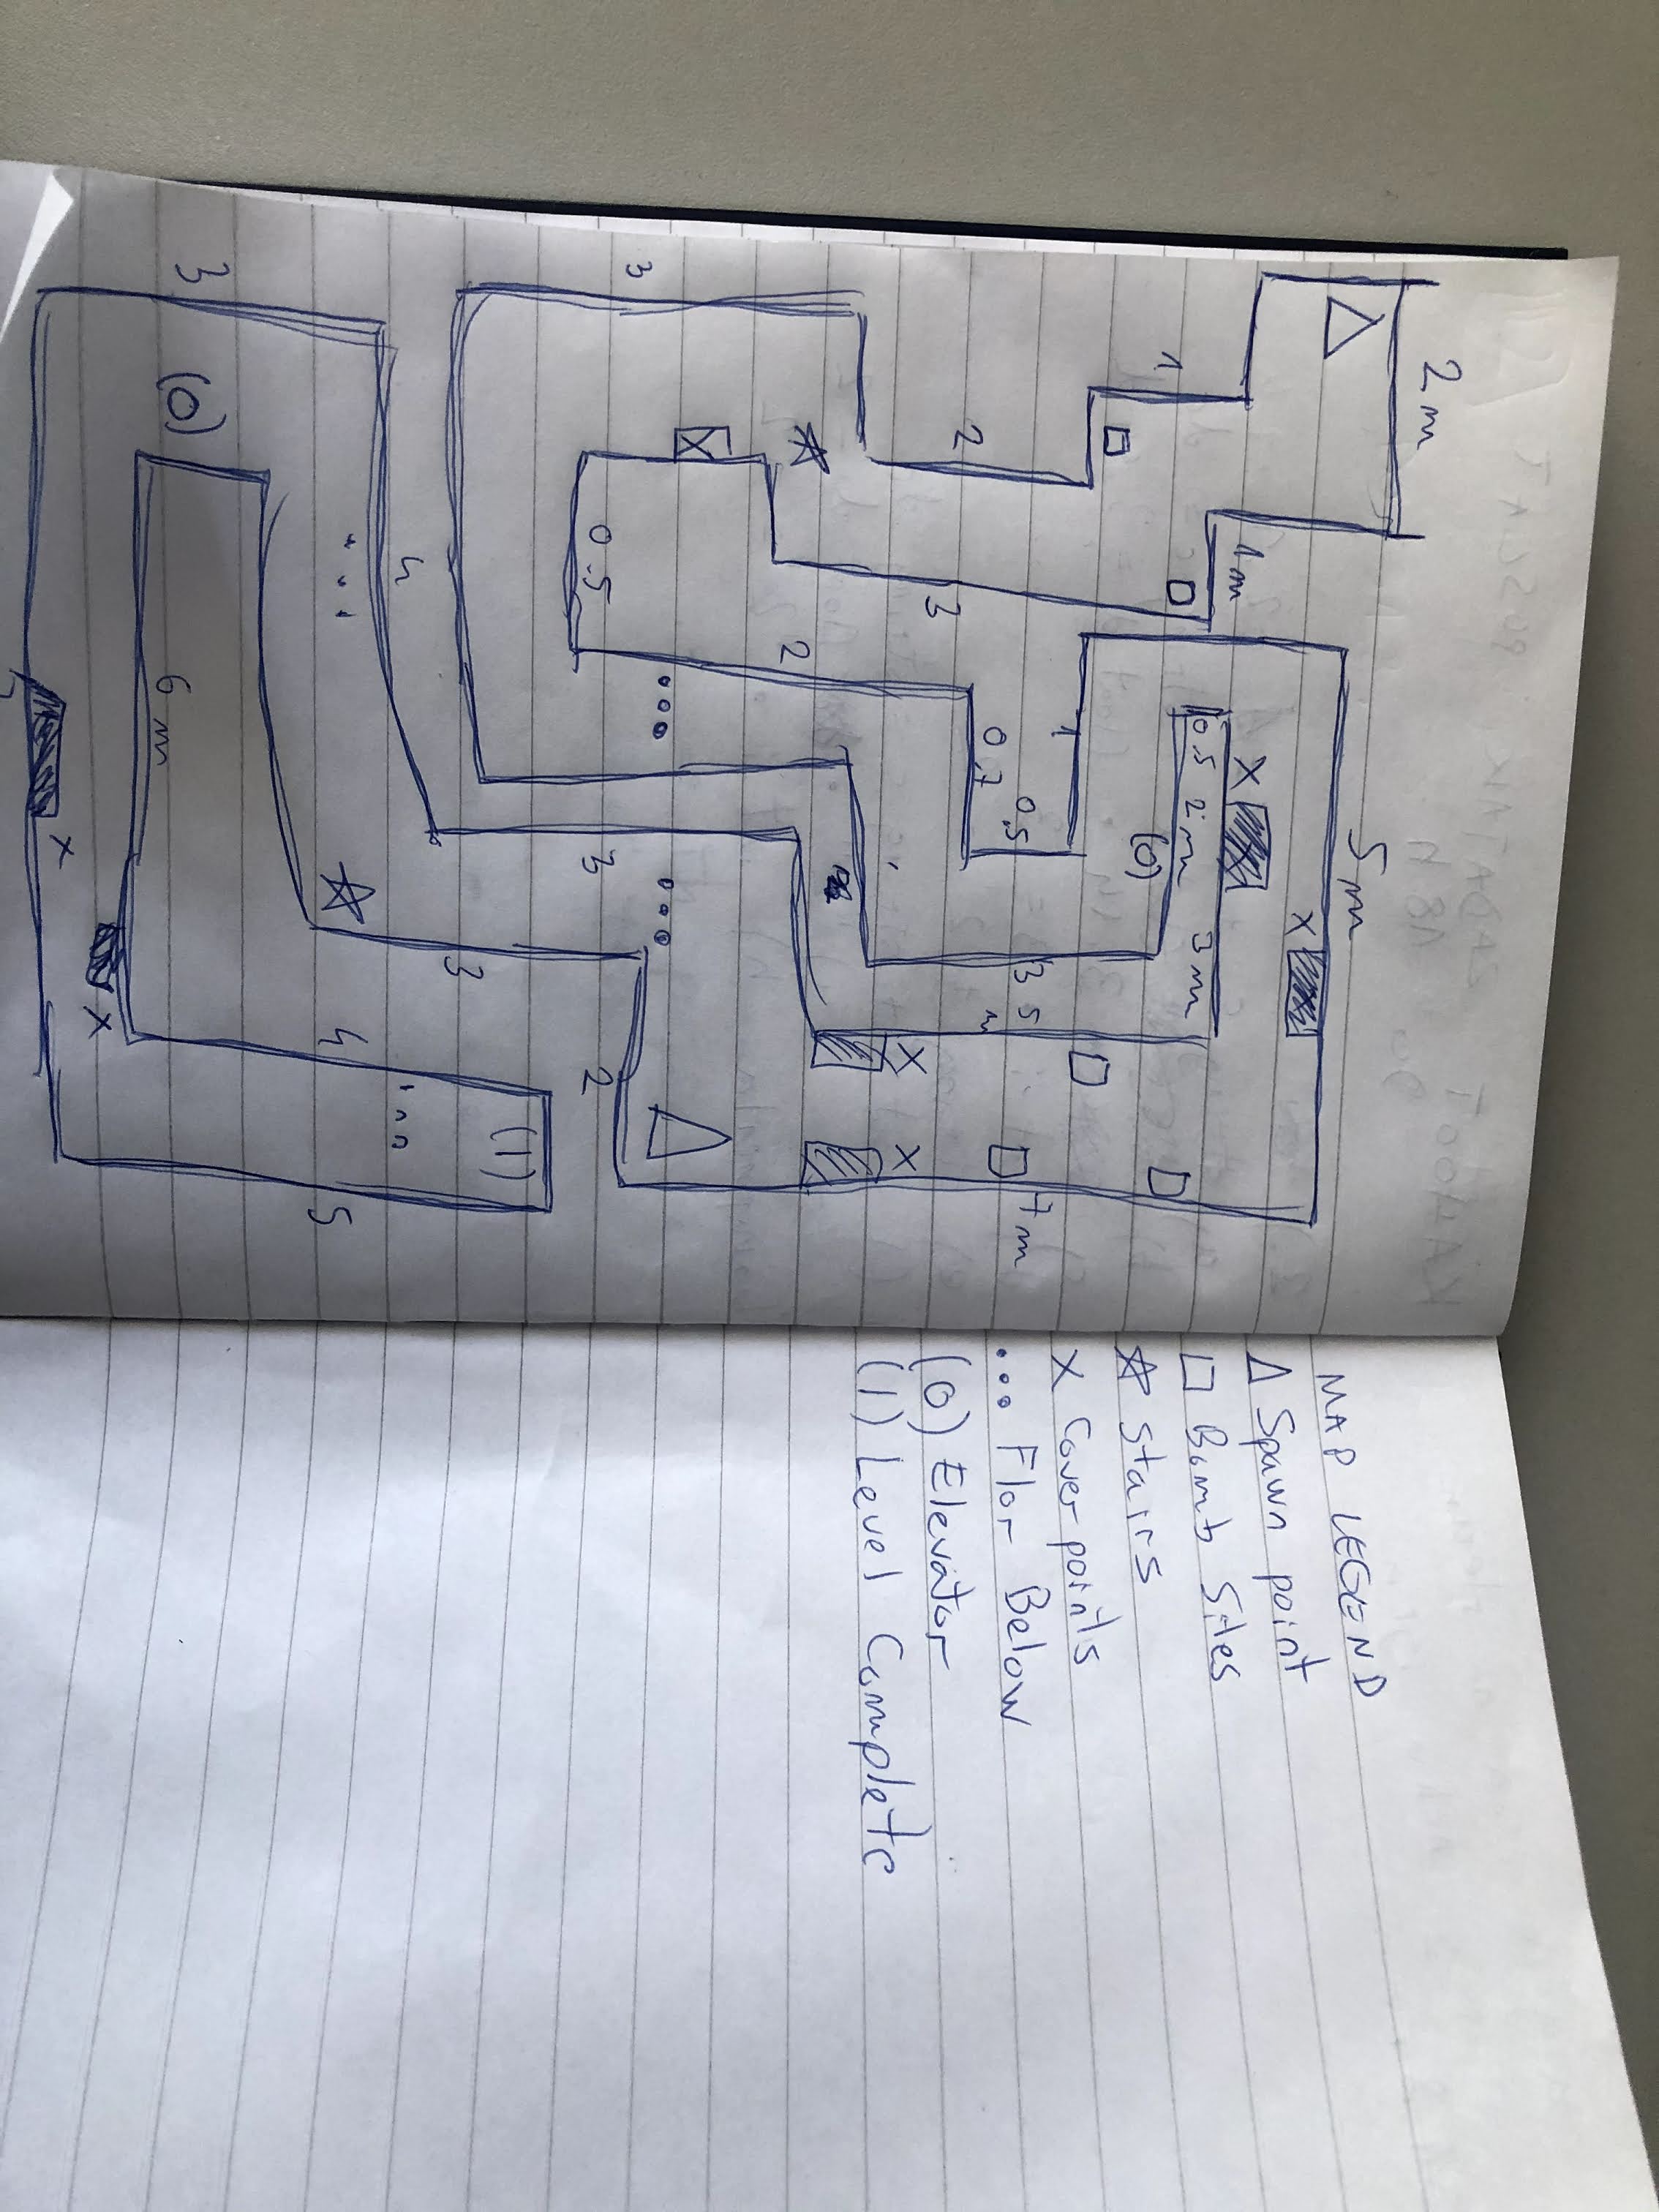 2 m
5 m
1 m
0.5 2 m 3 m
(0)
1
1
0.5
3 5
m
7 m
0.7
2
3
2
3
0.5
3
2
(1)
3
4
4
5
3
(0)
6 m
MAP LEGEND
△ Spawn point
□ Bomb Sites
☆ Stairs
X Cover points
... Flor Below
(0) Elevator
(1) Level Complete